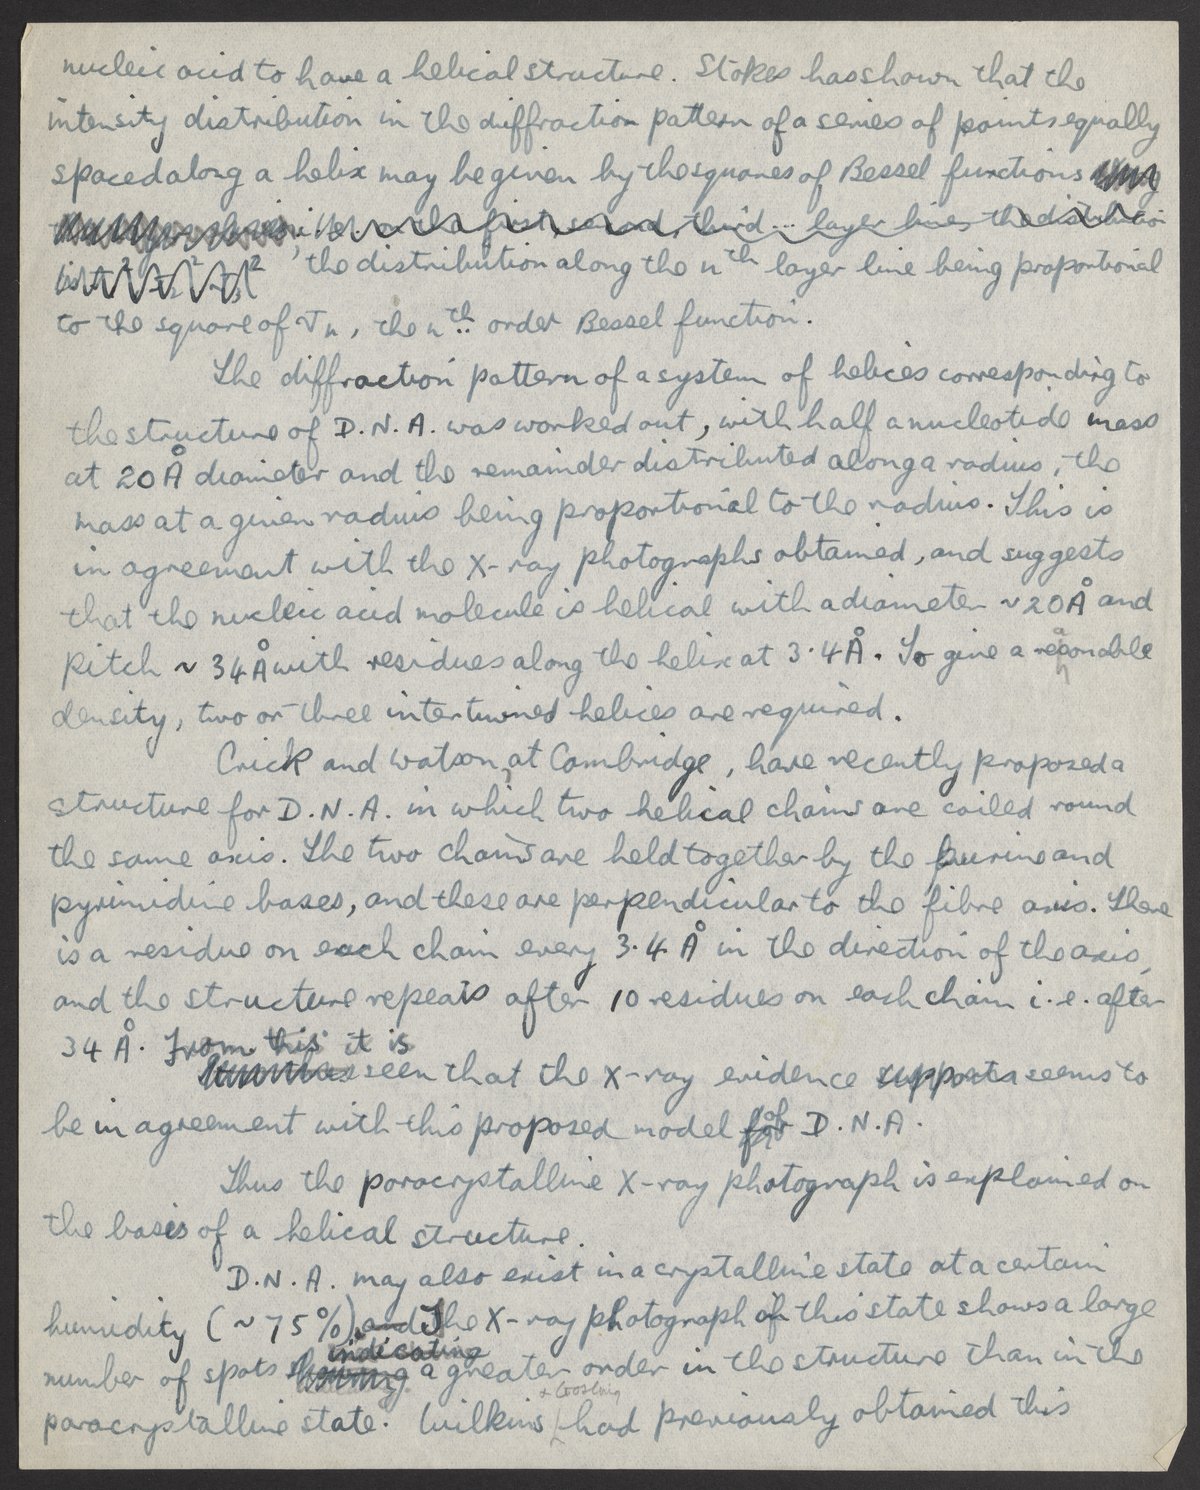 nucleic acid to have a helical structure. Stokes has shown that the
intensity distribution in the diffraction pattern of a series of points equally
spaced along a helix may be given by the squares of Bessel functions
on the first, second, third ... layer lines the distribution
, the distribution along the nth layer line being proportional
to the square of Jn, the nth order Bessel function.
The diffraction pattern of a system of helices corresponding to
the structure of D.N.A. was worked out, with half a nucleotide mass
at 20 Å diameter and the remainder distributed along a radius, the
mass at a given radius being proportional to the radius. This is
in agreement with the X-ray photographs obtained, and suggests
that the nucleic acid molecule is helical with a diameter ~20Å and
pitch ~ 34Å with residues along the helix at 3.4Å. To give a reasonable
density, two or three intertwined helices are required.
Crick and Watson, at Cambridge, have recently proposed a
structure for D.N.A. in which two helical chains are coiled round
the same axis. The two chains are held together by the purine and
pyrimidine bases, and these are perpendicular to the fibre axis. There
is a residue on each chain every 3.4 Å in the direction of the axis,
and the structure repeats after 10 residues on each chain i.e. after
34 Å. From this it is
seen that the X-ray evidence supports seems to
be in agreement with this proposed model for D.N.A.
Thus the paracrystalline X-ray photograph is explained on
the basis of a helical structure.
D.N.A. may also exist in a crystalline state at a certain
humidity (~75%). and The X-ray photograph of this state shows a large
indicating
number of spots showing a greater order in the structure than in the
+ Gosling
paracrystalline state. Wilkins had previously obtained this